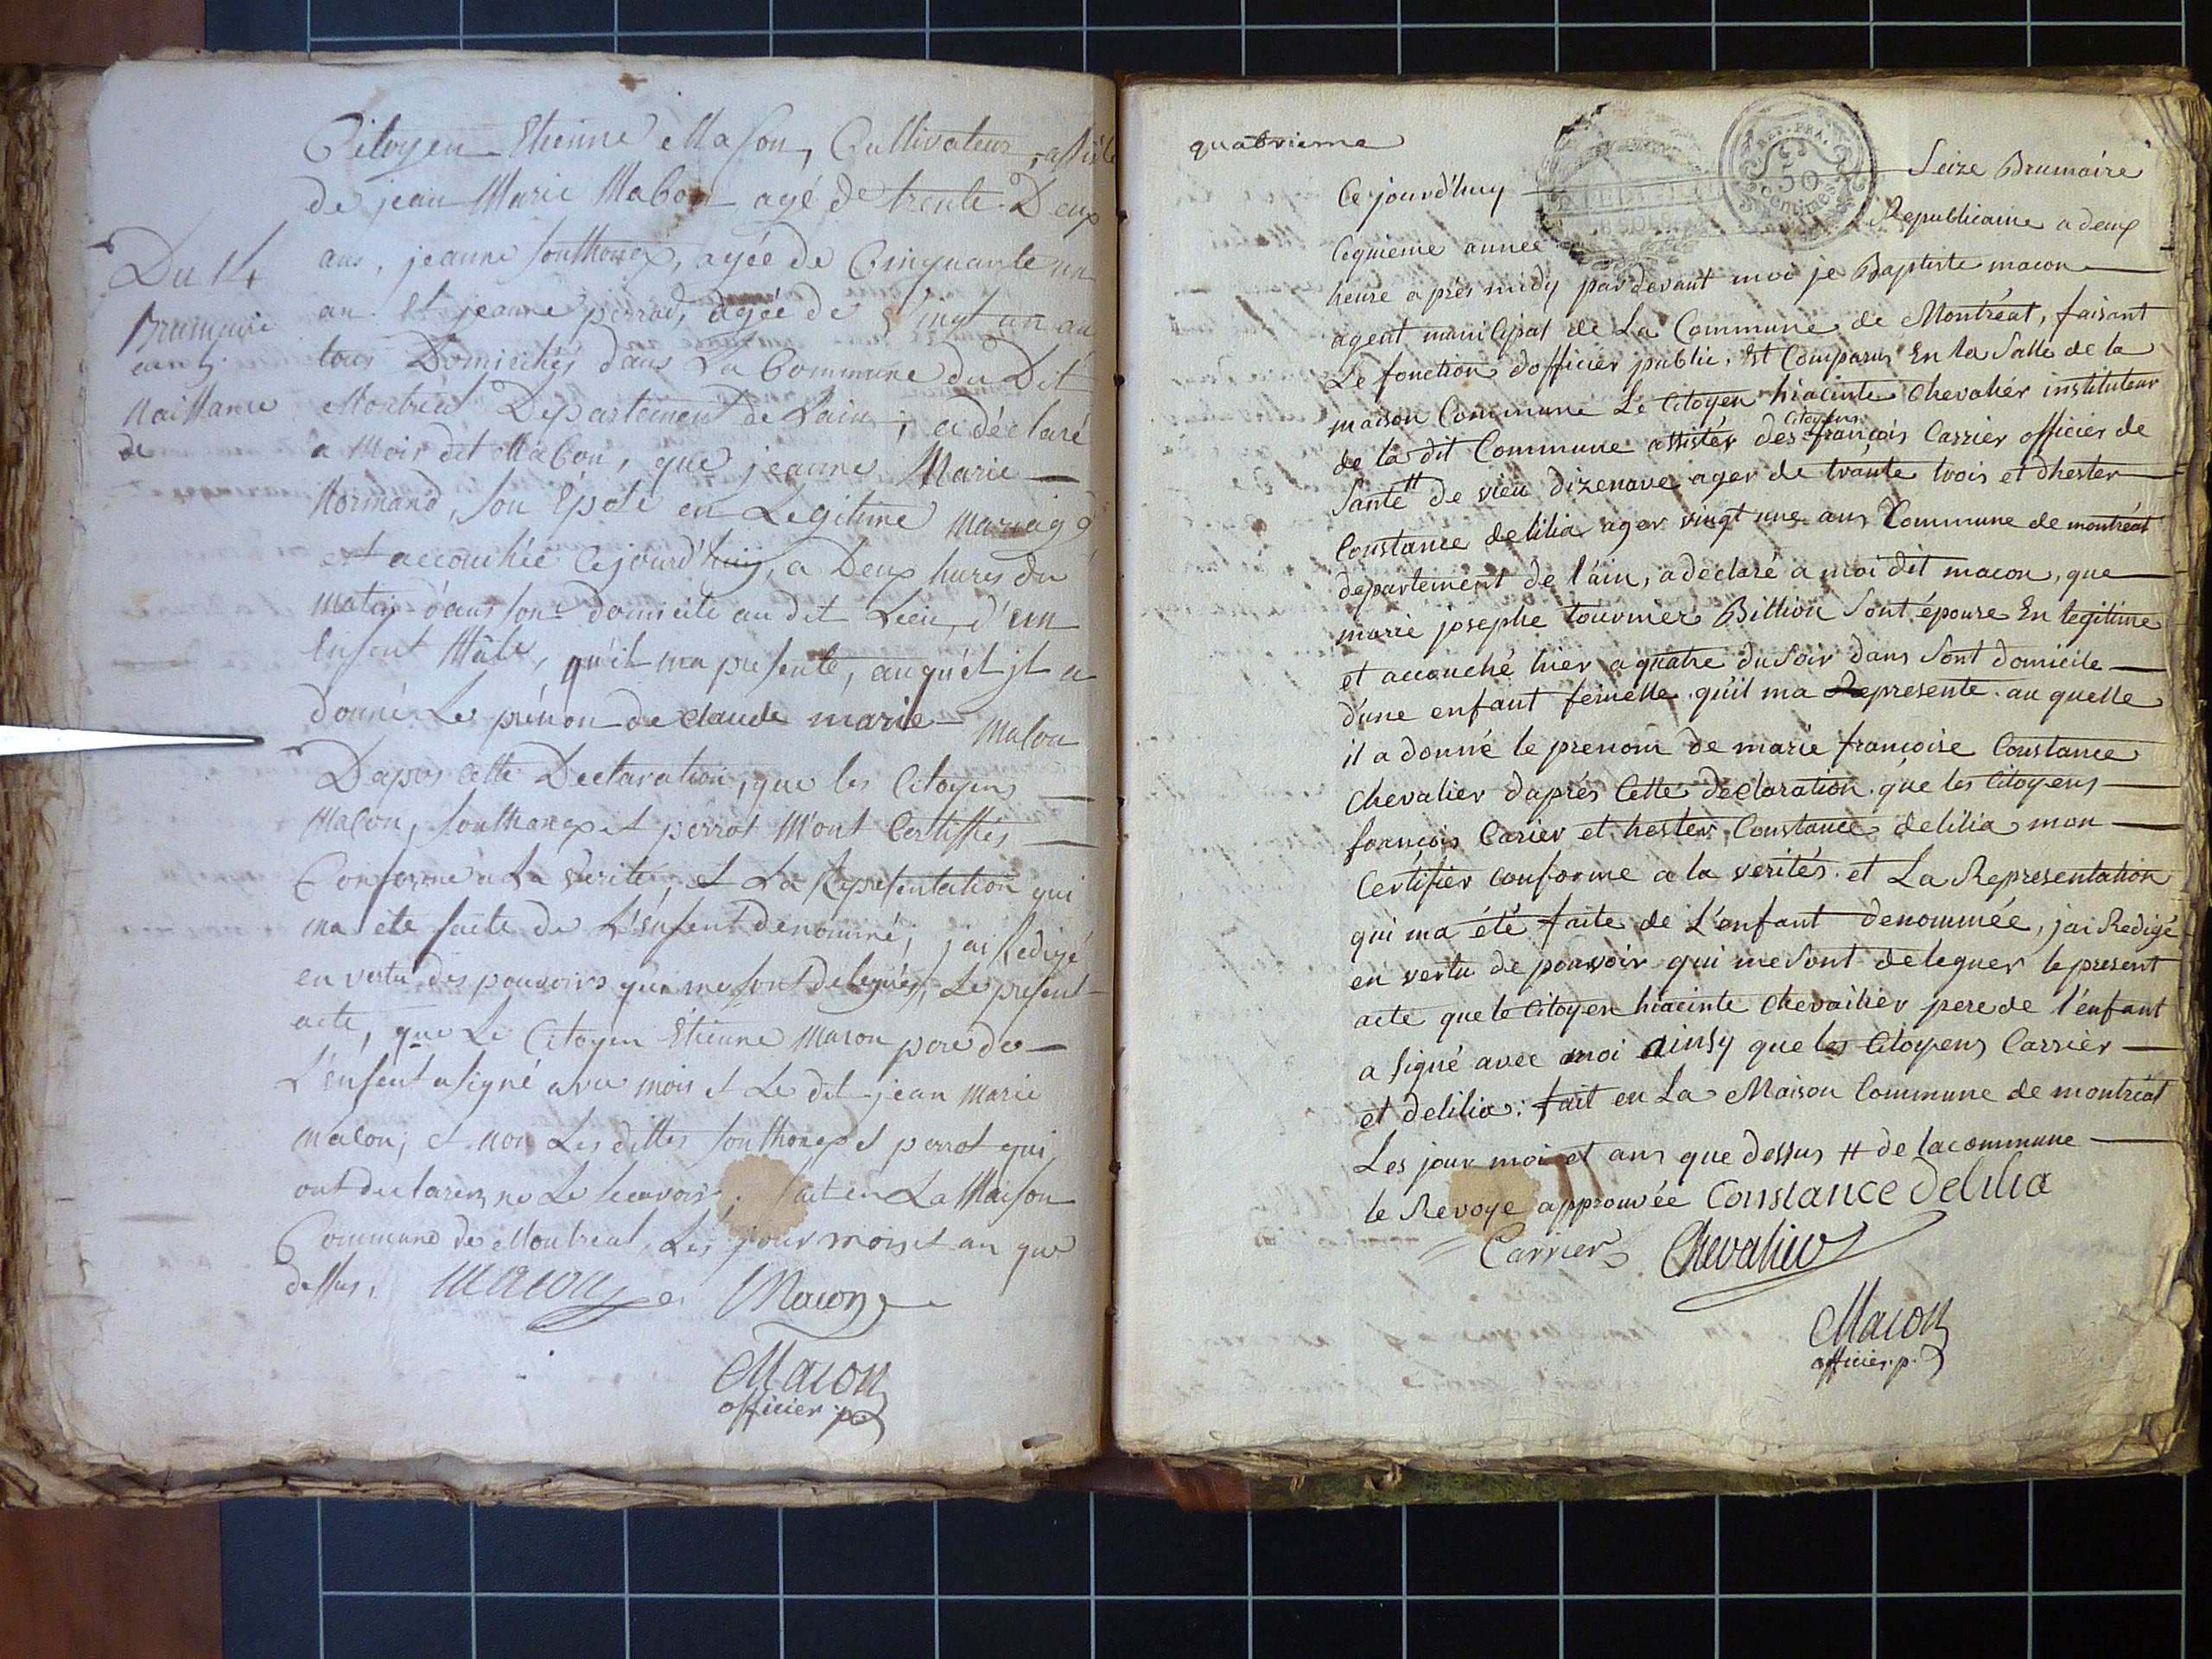 Citoyen Etienne Macon, Cultivateur, assisté
de jean Marie Macon agé de trente Deux
ans, jeanne Southonex, agée de Cinquante un
an. Et jeanne perrod, agée de Vingt un an
tous Domicihés dans La Commune du Dit
Montreal Departement de Lain, a déclaré
a Mois dit Macon, que jeanne Marie
Normand, son Epose en Legitime Mariage
est accouchée Cejourd'huij, a Deux hures du
matin dans son domicile au dit Lieu, d'un
Enfent Mâle, qu'il ma presente, auquel jl a
donné Le prénon de claude marie Macon
Dapres Cette Declaration, que les Citoyens
Macon, Southonex et perrot M'ont Certiffiés
Conforme a La Verité, et La Representation qui
ma été faite de L'enfent denommé, j'ai Redigé
en vertu des pouvoirs qui me sont delegués, Le present
acte, que Le Citoyen Etienne Macon pere de
L'enfent a signé avec mois et Le dit jean Marie
Macon, et non Les dittes Southonex et perrot qui
ont declarer, ne Le scavoir, fait en La Maison
Commune de Montreal, Les jour mois et an que
dessus. Macon Macon
Macon
officier p.
Du 14
Brumaire
an 5
Naissance
de
quatrieme
50
centimes
Ce jourd'huy Seize Brumaire
Cequieme annee Republicaine a deux
heure après midy par devant moi je Baptiste macon
agent municipal de La Commune de Montréal, faisant
Le fonction dofficier public. Est Comparus En la Salle de la
maison Commune Le Citoyen hiacinte Chevalier instituteur
de la dit Commune assister des citoyens françois Carrier officier de
Santé # de vieu dizenave ager de trante trois et dhester
Constance delilia ager vingt une ans Commune de montréal
departement de l'ain, a déclaré a moi dit macon, que
marie josephe tournier Billion Sont épouse En legitime
et accouché hier a quatre du soir dans Sont domicile
d'une enfant femelle. quil ma Represente. au quelle
il a donné le prenom de marie françoise Constance
Chevalier d'aprés Cette declaration. que les Citoyens
françois Carier et hester Constance delilia mon
Certifier conforme a la verités. et La Representation
qui ma été faite de L'enfant denommée, jai Redigé
en vertu de pouvoir qui me Sont deleguer le present
acte que le Citoyen hiacinte Chevailier pere de l'enfant
a Signé avec moi ainsy que les Citoyens Carrier
et delilia: fait en La Maison Commune de montréal
Les jour moi et ans que dessus # de lacommune
le Revoye approuvée Constance Delilia
Carrier Chevalier
Macon
officier. p.